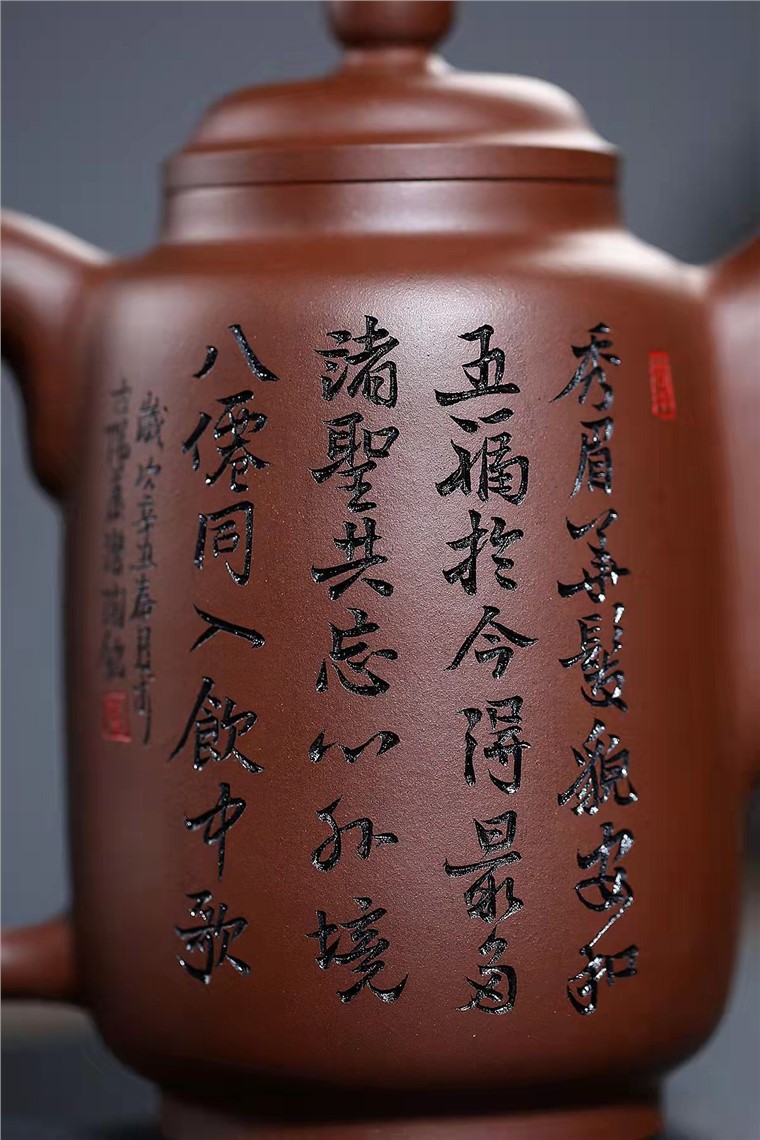 秀眉華髮貌安和
五福於今得最多
諸聖共忘心外境
八僊同入飲中歌
歲次辛丑春月